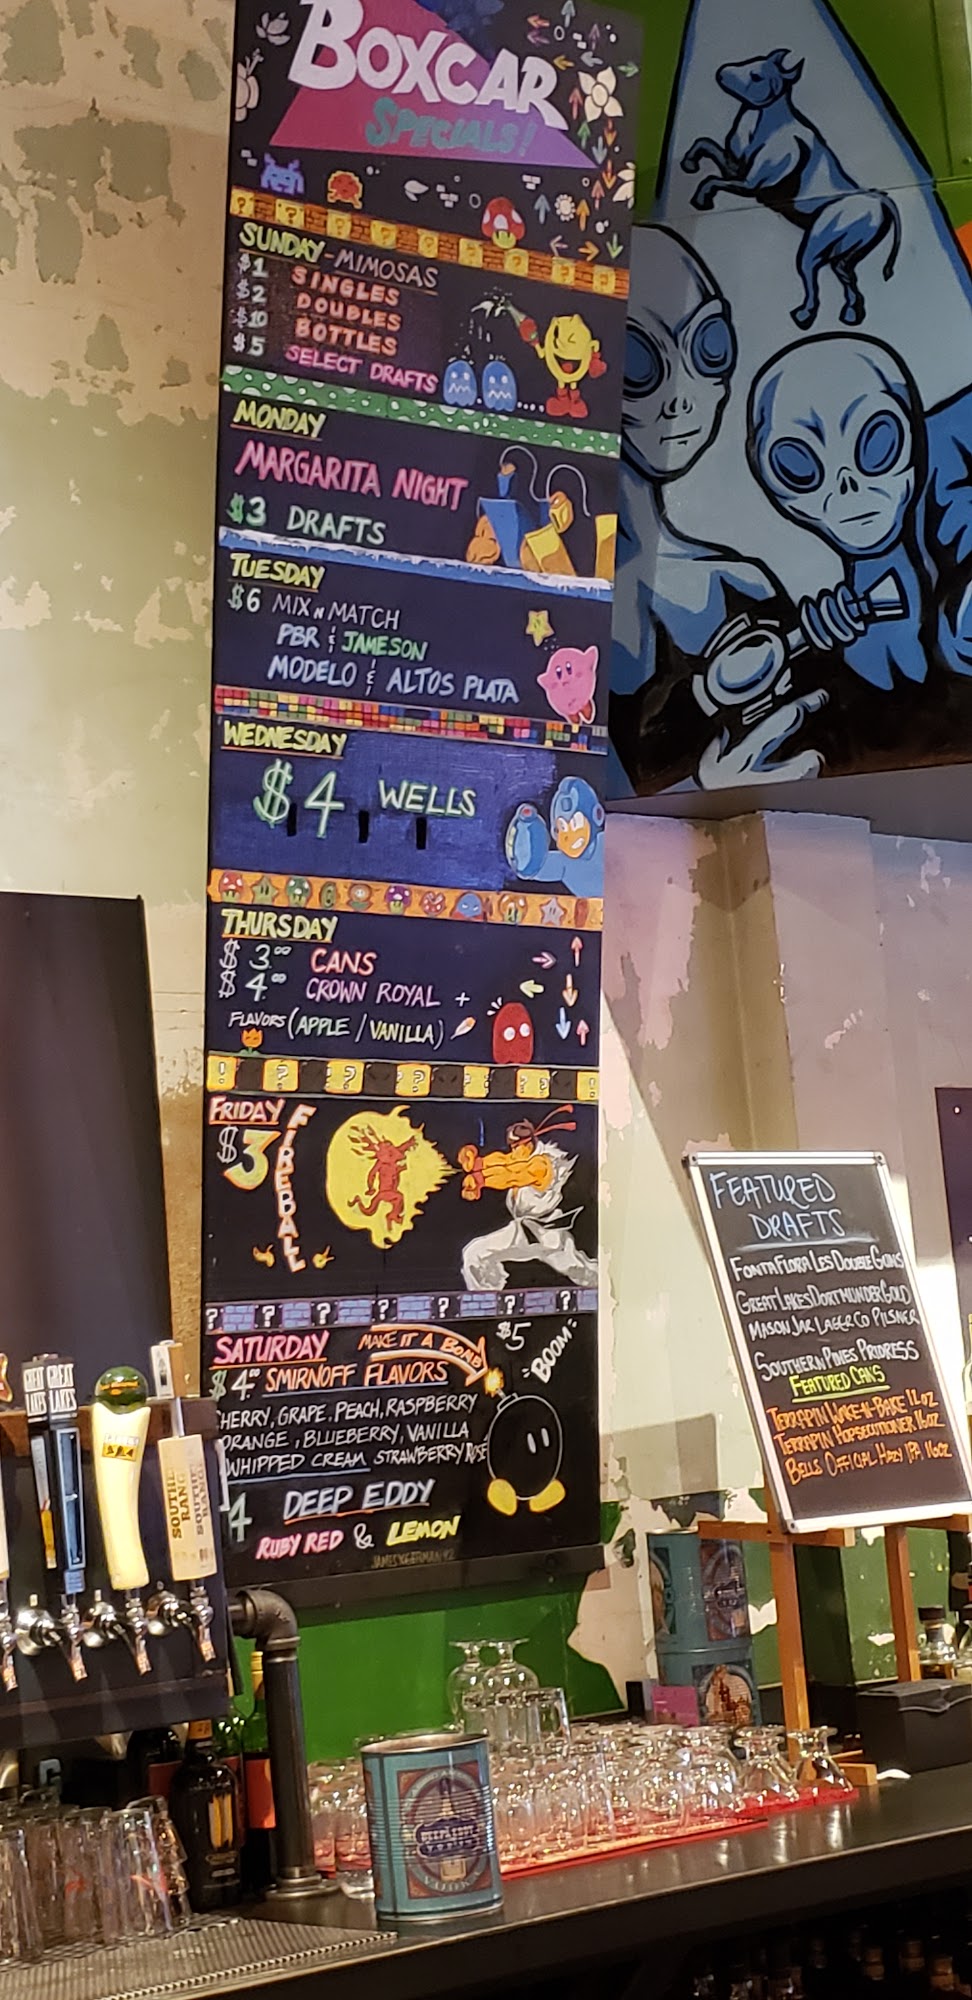 BOXCAR
SPECIALS!
SUNDAY - MIMOSAS
$1 SINGLES
$2 DOUBLES
$10 BOTTLES
$5 SELECT DRAFTS
MONDAY
MARGARITA NIGHT
$3 DRAFTS
TUESDAY
$6 MIX N MATCH
PBR & JAMESON
MODELO & ALTOS PLATA
WEDNESDAY
$4 WELLS
THURSDAY
$3.00 CANS
$4.00 CROWN ROYAL +
FLAVORS (APPLE / VANILLA)
FRIDAY
$3
FIREBALL
SATURDAY
MAKE IT A BOMB
$5
BOOM!
$4.00 SMIRNOFF FLAVORS
HERRY, GRAPE, PEACH, RASPBERRY
ORANGE, BLUEBERRY, VANILLA
WHIPPED CREAM STRAWBERRY ROSE
4 DEEP EDDY
RUBY RED & LEMON
FEATURED
DRAFTS
FONTA FLORA LES DOUBLE GUNS
GREAT LAKES DORTMUNDER GOLD
MASON JAR LAGER CO PILSNER
SOUTHERN PINES PRIORESS
FEATURED CANS
TERRAPIN WAKE-N-BAKE 12OZ
TERRAPIN HOPSECUTIONER 16OZ
BELLS OFFICIAL HAZY IPA 16OZ
GREAT LAKES
GREAT LAKES
SOUTH RANG
DEEP EDDY